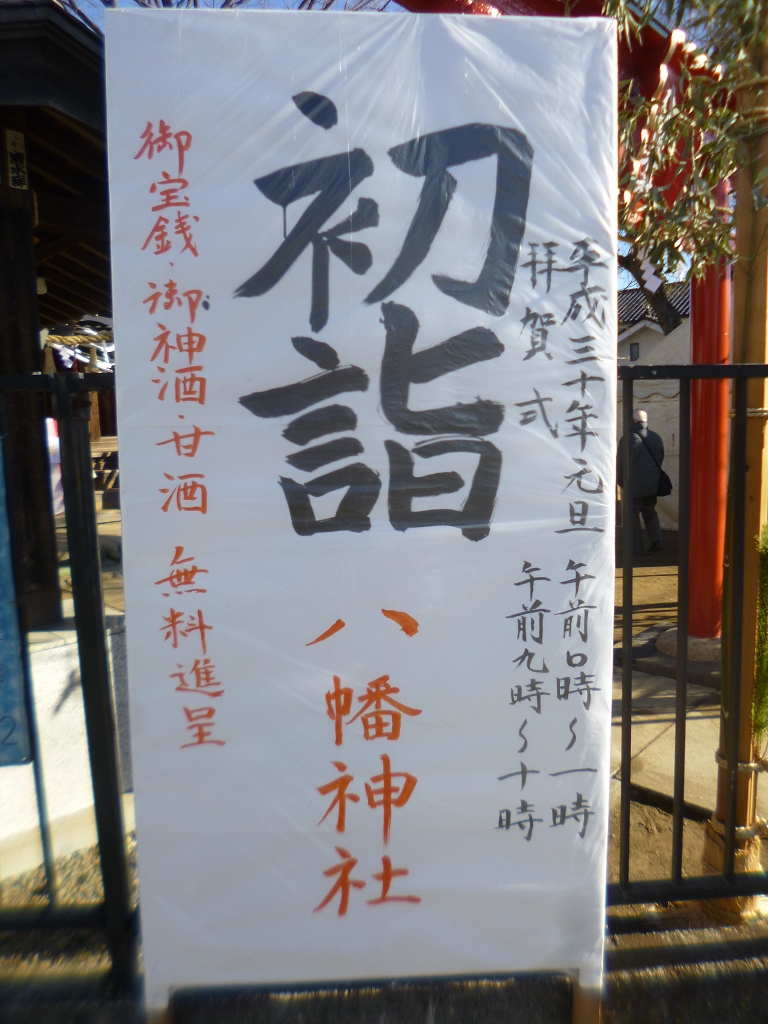 平成三十年元旦 午前〇時〜一時
拝賀式 午前九時〜十時
初詣
八幡神社
御宝銭・御神酒・甘酒 無料進呈